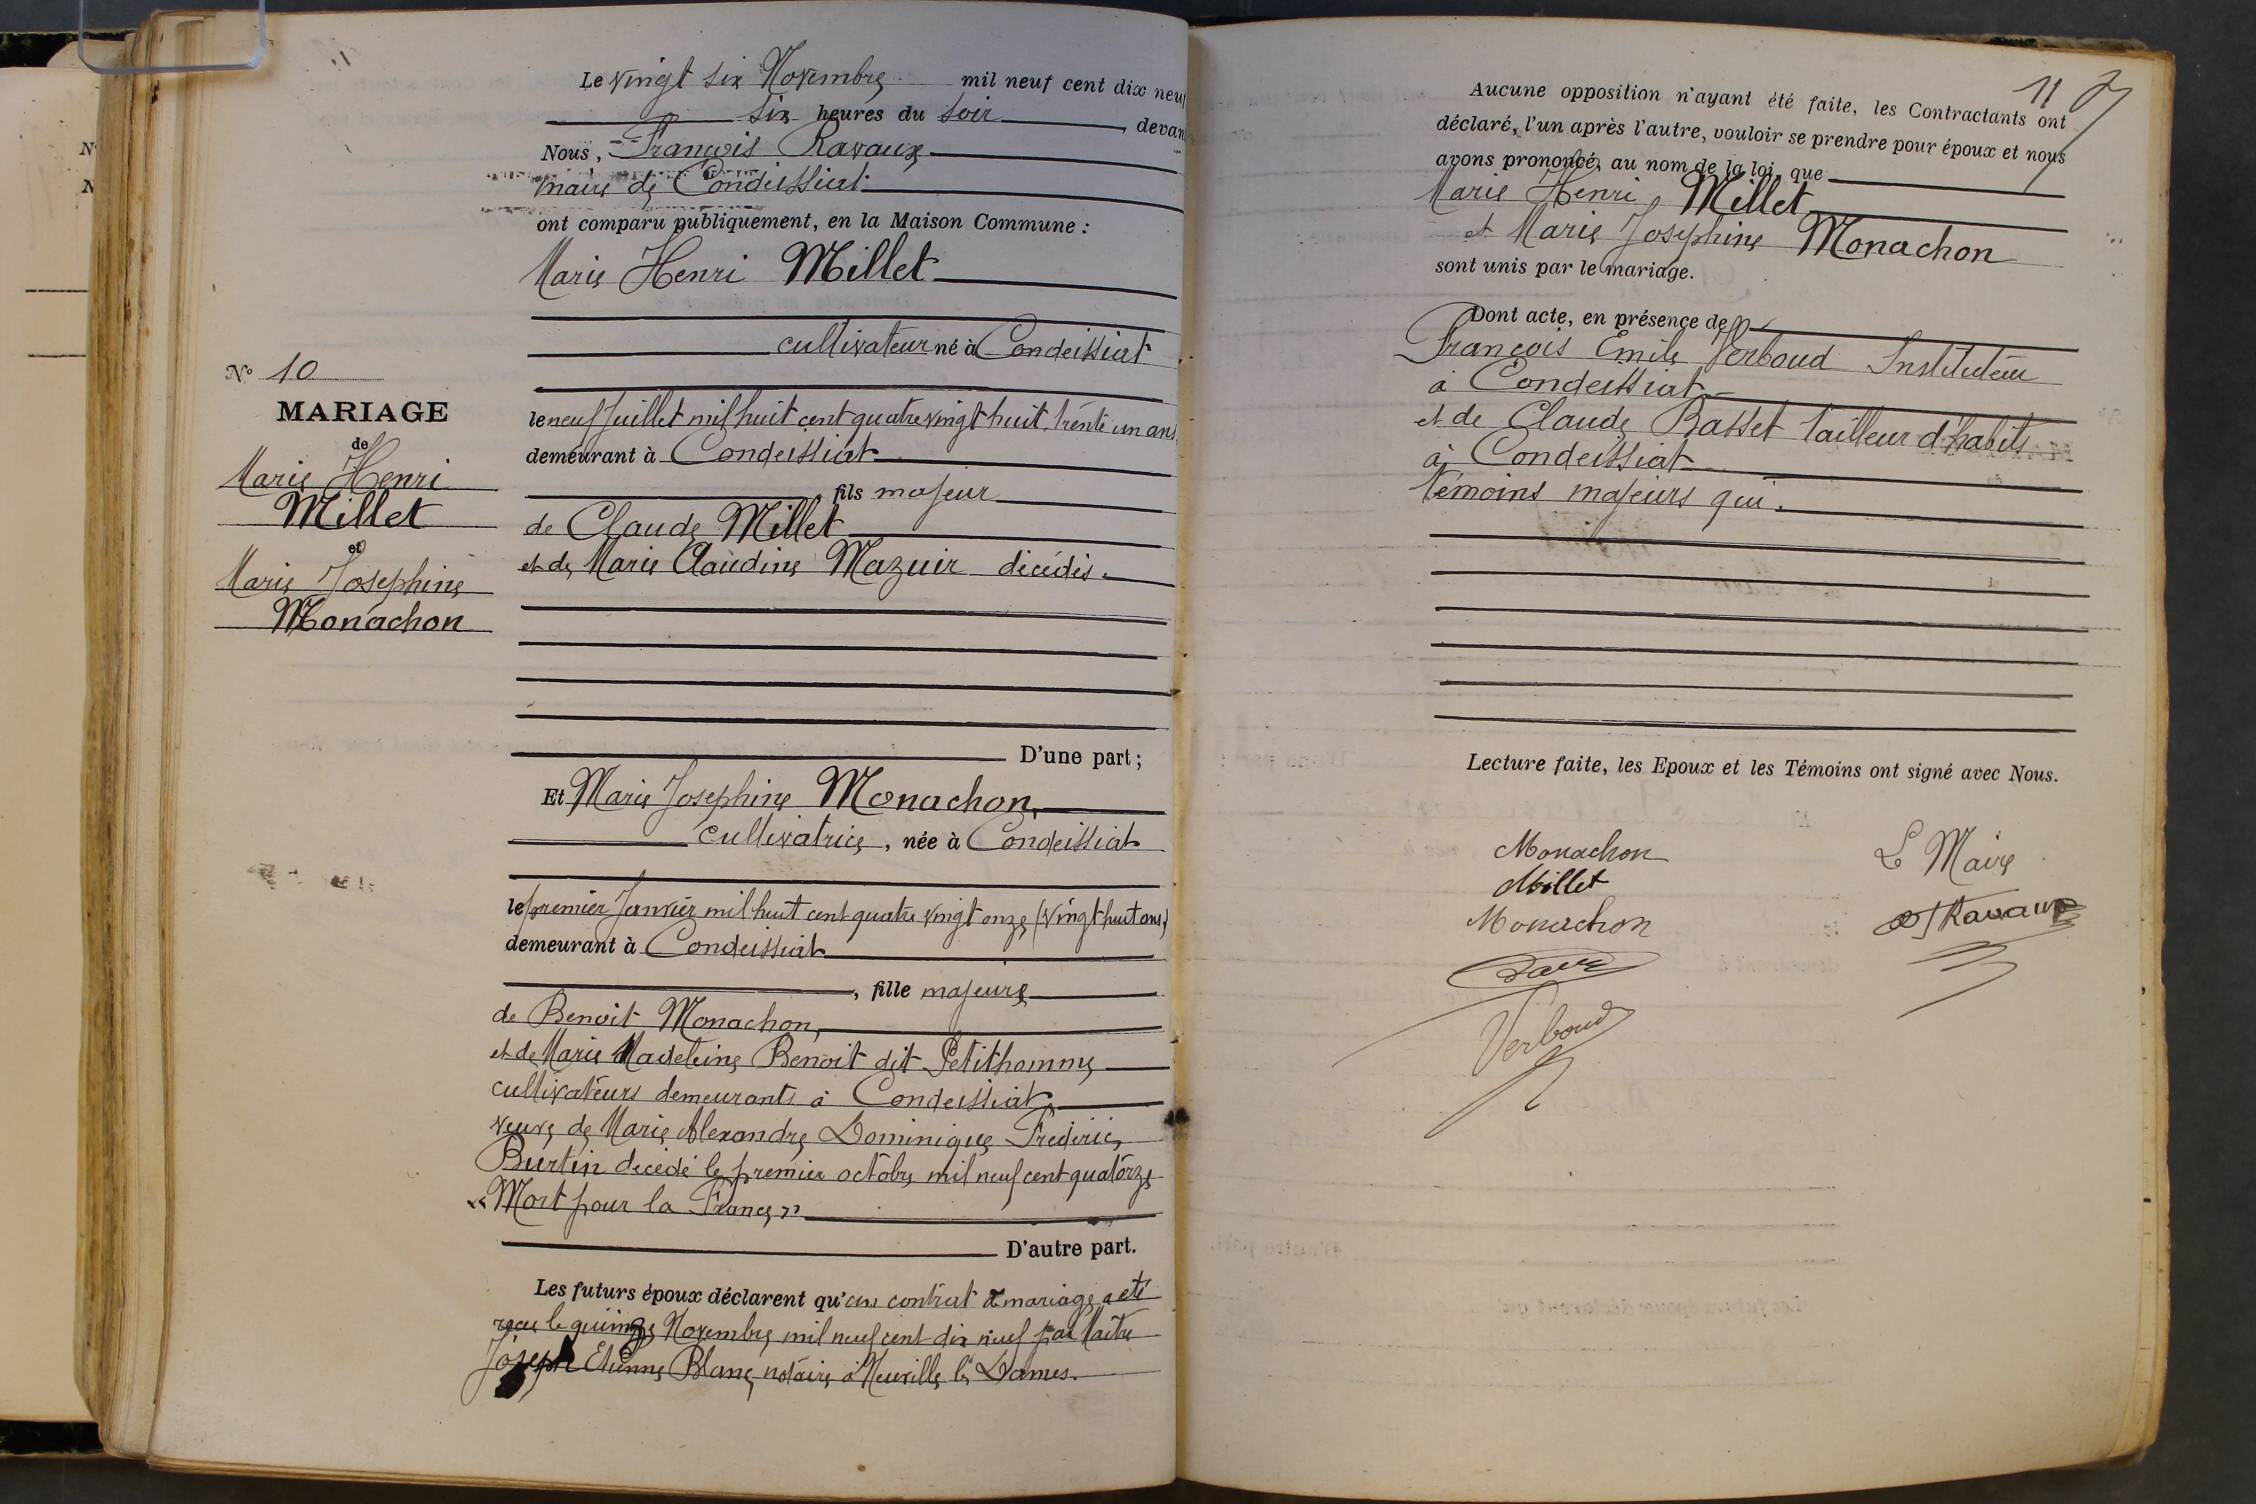 Le vingt six Novembre mil neuf cent dix neuf
six heures du soir, devant
Nous, François Ravaux
maire de Condeissiat
ont comparu publiquement, en la Maison Commune :
Marie Henri Millet
cultivateur né à Condeissiat
le neuf Juillet mil huit cent quatre vingt huit, trente un ans
demeurant à Condeissiat
fils majeur
de Claude Millet
et de Marie Claudine Mazuir décédés.
D'une part ;
Et Marie Josephine Monachon,
cultivatrice, née à Condeissiat
le premier Janvier mil huit cent quatre vingt onze (vingt huit ans)
demeurant à Condeissiat
, fille majeure
de Benoit Monachon,
et de Marie Madeleine Benoit dit Petithomme
cultivateurs demeurants à Condeissiat,
veuve de Marie Alexandre Dominique Frédéric
Burtin décédé le premier octobre mil neuf cent quatorze
« Mort pour la France »
D'autre part.
Les futurs époux déclarent qu'un contrat de mariage a été
reçu le quinze Novembre mil neuf cent dix neuf par Maître
Joseph Etienne Blanc, notaire à Neuville les Dames.
N° 10
MARIAGE
de
Marie Henri
Millet
et
Marie Josephine
Monachon
11
Aucune opposition n'ayant été faite, les Contractants ont
déclaré, l'un après l'autre, vouloir se prendre pour époux et nous
avons prononcé, au nom de la loi, que
Marie Henri Millet
et Marie Josephine Monachon
sont unis par le mariage.
Dont acte, en présence de
François Emile Verboud Instituteur
à Condeissiat
et de Claude Basset tailleur d'habits
à Condeissiat
témoins majeurs qui.
Lecture faite, les Epoux et les Témoins ont signé avec Nous.
Monachon
Millet
Monachon
Verboud
Le Maire
Ravaux